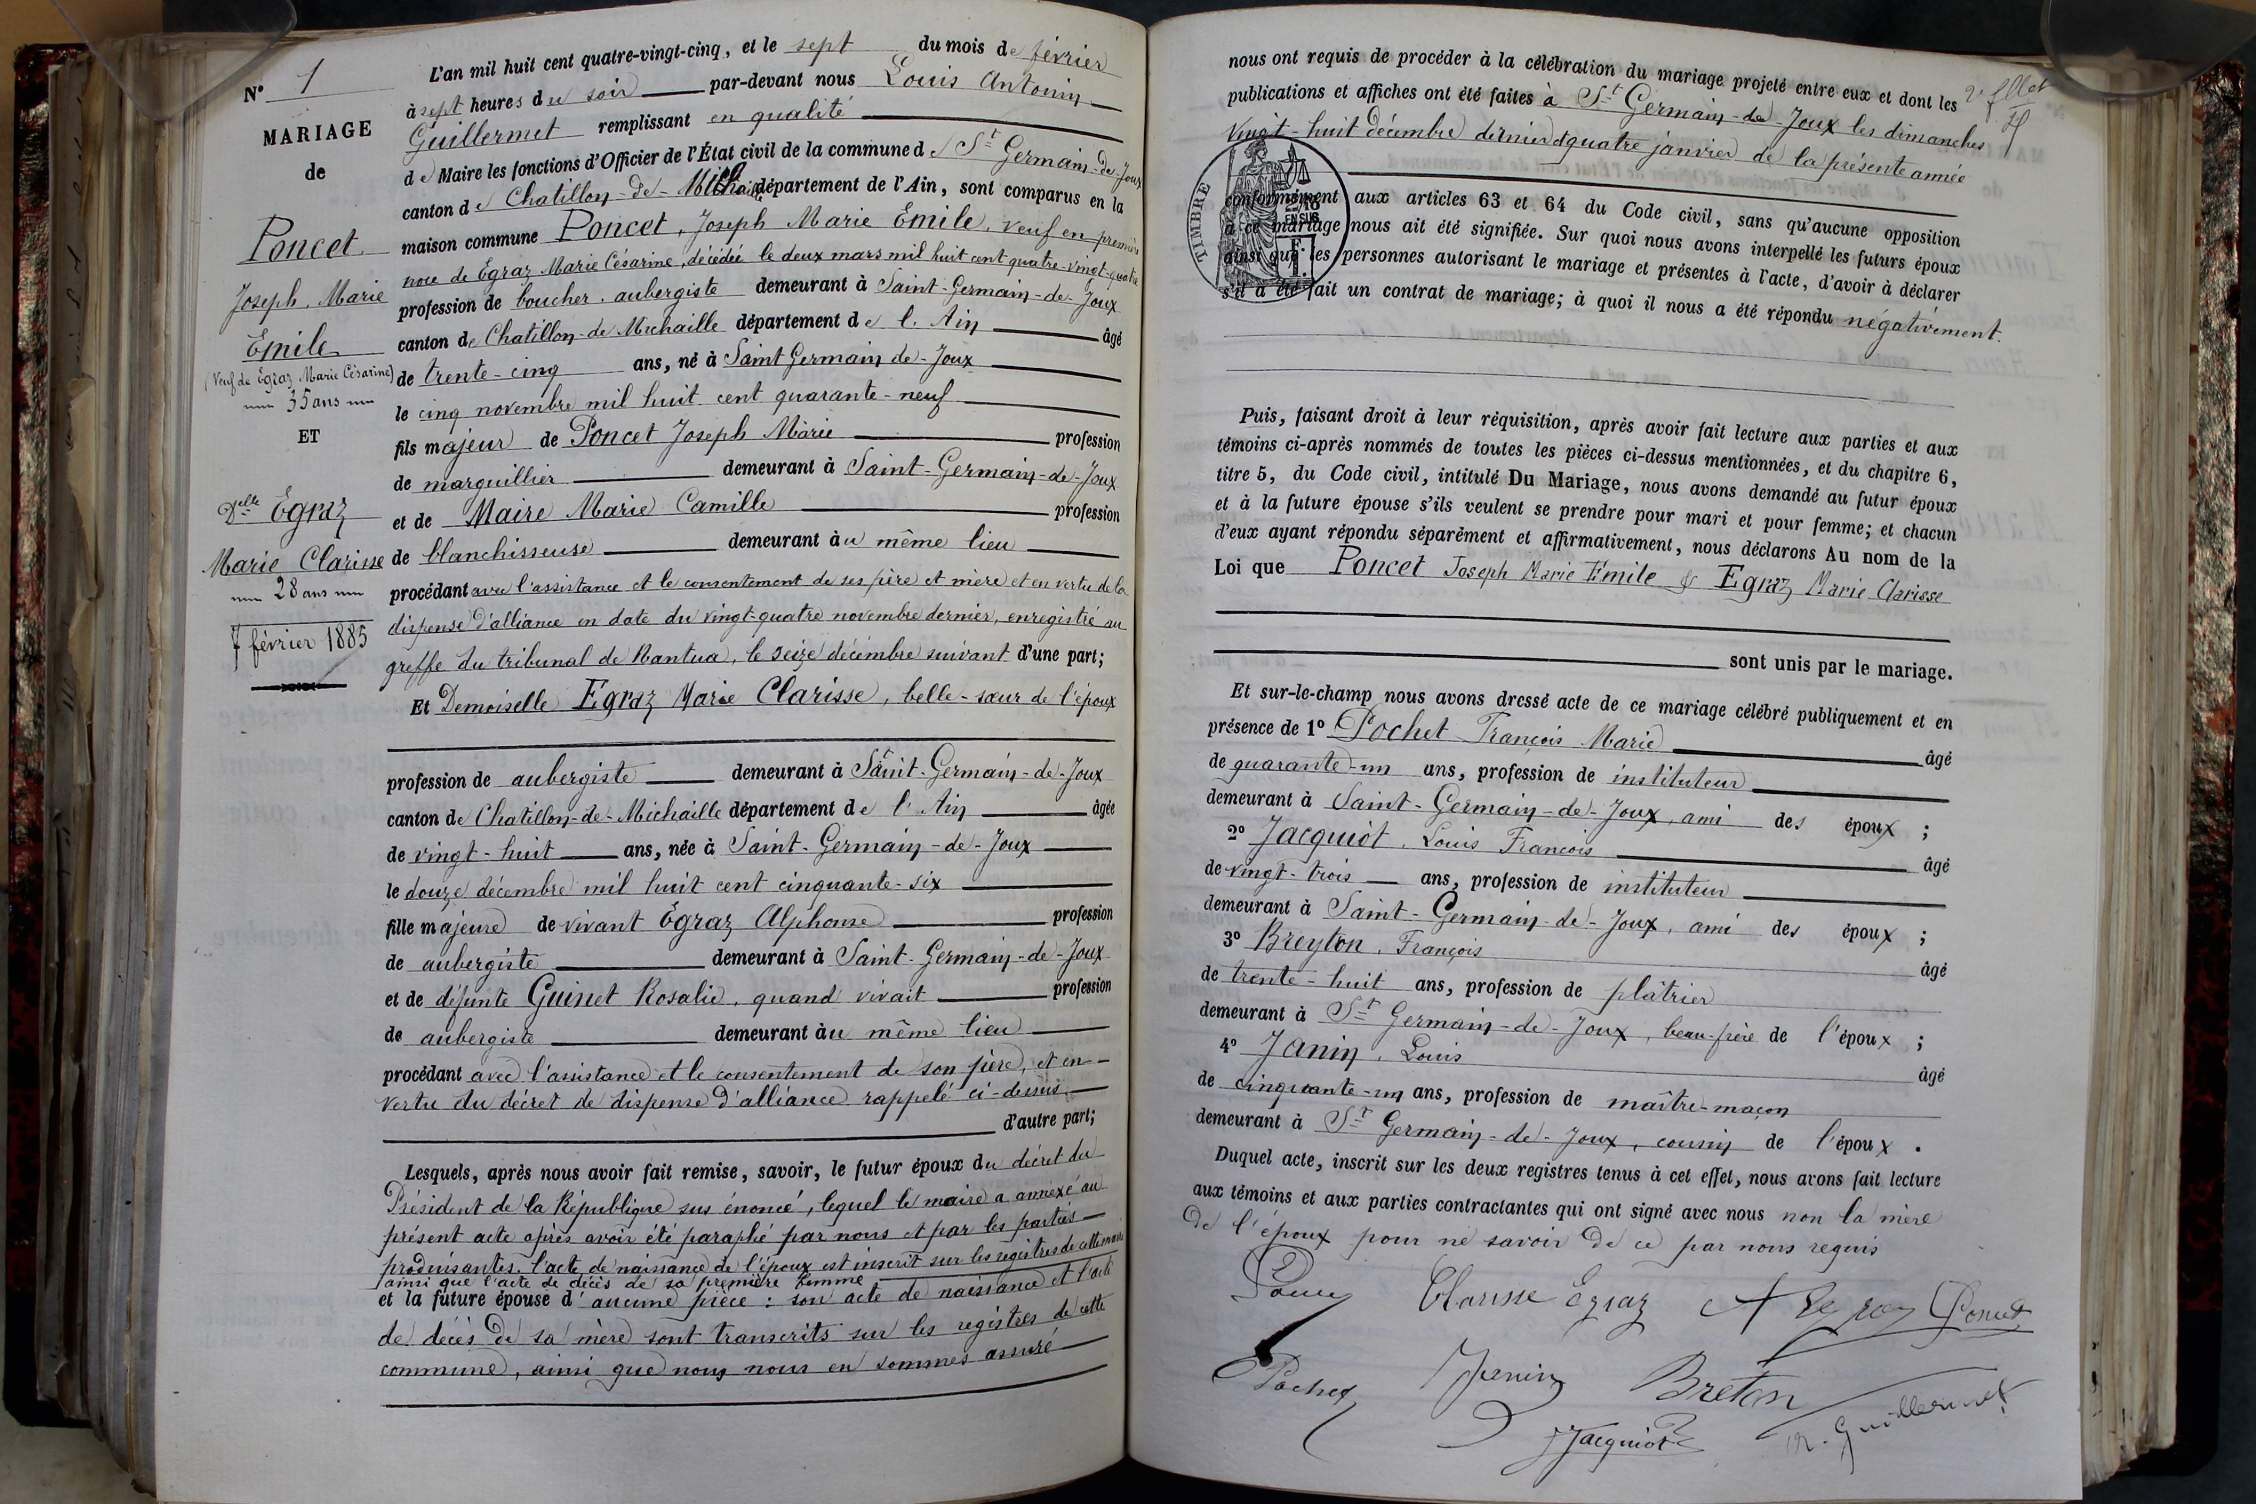 N° 1
MARIAGE
de
Poncet
Joseph, Marie
Emile
(Veuf de Egraz Marie Césarine)
35 ans
ET
Delle Egraz
Marie Clarisse
28 ans
7 février 1885
L'an mil huit cent quatre-vingt-cinq, et le sept du mois de février
à sept heures du soir par-devant nous Louis Antonin
Guillermet remplissant en qualité
de Maire les fonctions d'Officier de l'État civil de la commune de St Germain-de-Joux
canton de Chatillon-de-Michaille département de l'Ain, sont comparus en la
maison commune Poncet, Joseph Marie Emile, veuf en première
noce de Egraz Marie Césarine, décédée le deux mars mil huit cent quatre-vingt-quatre
profession de boucher-aubergiste demeurant à Saint-Germain-de-Joux
canton de Chatillon-de-Michaille département de l'Ain âgé
de trente-cinq ans, né à Saint Germain de-Joux
le cinq novembre mil huit cent quarante-neuf
fils majeur de Poncet Joseph Marie profession
de marguillier demeurant à Saint-Germain-de-Joux
et de Maire Marie Camille profession
de blanchisseuse demeurant àu même lieu
procédant avec l'assistance et le consentement de ses père et mère et en vertu de la
dispense d'alliance en date du vingt-quatre novembre dernier, enregistré au
greffe du tribunal de Nantua, le seize décembre suivant d'une part;
Et Demoiselle Egraz Marie Clarisse, belle-sœur de l'époux
profession de aubergiste demeurant à Saint-Germain-de-Joux
canton de Chatillon-de-Michaille département de l'Ain âgée
de vingt-huit ans, née à Saint-Germain-de-Joux
le douze décembre mil huit cent cinquante-six
fille majeure de vivant Egraz Alphonse profession
de aubergiste demeurant à Saint-Germain-de-Joux
et de défunte Guinet Rosalie, quand vivait profession
de aubergiste demeurant àu même lieu
procédant avec l'assistance et le consentement de son père, et en
vertu du décret de dispense d'alliance rappelé ci-dessus
d'autre part;
Lesquels, après nous avoir fait remise, savoir, le futur époux du décret du
Président de la République sus énoncé, lequel le maire a annexé au
présent acte après avoir été paraphé par nous et par les parties
produisantes. l'acte de naissance de l'époux est inscrit sur les registres de cette mairie
ainsi que l'acte de décès de sa première femme
et la future épouse d'aucune pièce : son acte de naissance et l'acte
de décès de sa mère sont transcrits sur les registres de cette
commune, ainsi que nous nous en sommes assuré
nous ont requis de procéder à la célébration du mariage projeté entre eux et dont les
publications et affiches ont été faites à St Germain-de-Joux les dimanches
vingt-huit décembre dernier & quatre janvier de la présente année
TIMBRE
2/10
EN SUS
conformément aux articles 63 et 64 du Code civil, sans qu'aucune opposition
à ce mariage nous ait été signifiée. Sur quoi nous avons interpellé les futurs époux
ainsi que les personnes autorisant le mariage et présentes à l'acte, d'avoir à déclarer
s'il a été fait un contrat de mariage; à quoi il nous a été répondu négativement.
Puis, faisant droit à leur réquisition, après avoir fait lecture aux parties et aux
témoins ci-après nommés de toutes les pièces ci-dessus mentionnées, et du chapitre 6,
titre 5, du Code civil, intitulé Du Mariage, nous avons demandé au futur époux
et à la future épouse s'ils veulent se prendre pour mari et pour femme; et chacun
d'eux ayant répondu séparément et affirmativement, nous déclarons Au nom de la
Loi que Poncet Joseph Marie Emile & Egraz Marie Clarisse
sont unis par le mariage.
Et sur-le-champ nous avons dressé acte de ce mariage célébré publiquement et en
présence de 1° Pochet François Marie âgé
de quarante-un ans, profession de instituteur
demeurant à Saint-Germain-de-Joux, ami des époux ;
2° Jacquiot, Louis François âgé
de vingt-trois ans, profession de instituteur
demeurant à Saint-Germain-de-Joux, ami des époux ;
3° Breyton, François âgé
de trente-huit ans, profession de plâtrier
demeurant à St Germain-de-Joux, beau-frère de l'époux ;
4° Janin, Louis âgé
de cinquante-un ans, profession de maître-maçon
demeurant à St Germain-de-Joux, cousin de l'époux .
Duquel acte, inscrit sur les deux registres tenus à cet effet, nous avons fait lecture
aux témoins et aux parties contractantes qui ont signé avec nous non la mère
de l'époux pour ne savoir de ce par nous requis
Clarisse Egraz A Egraz Poncet
Pochet Janin Breton
Jacquiot Guillermet